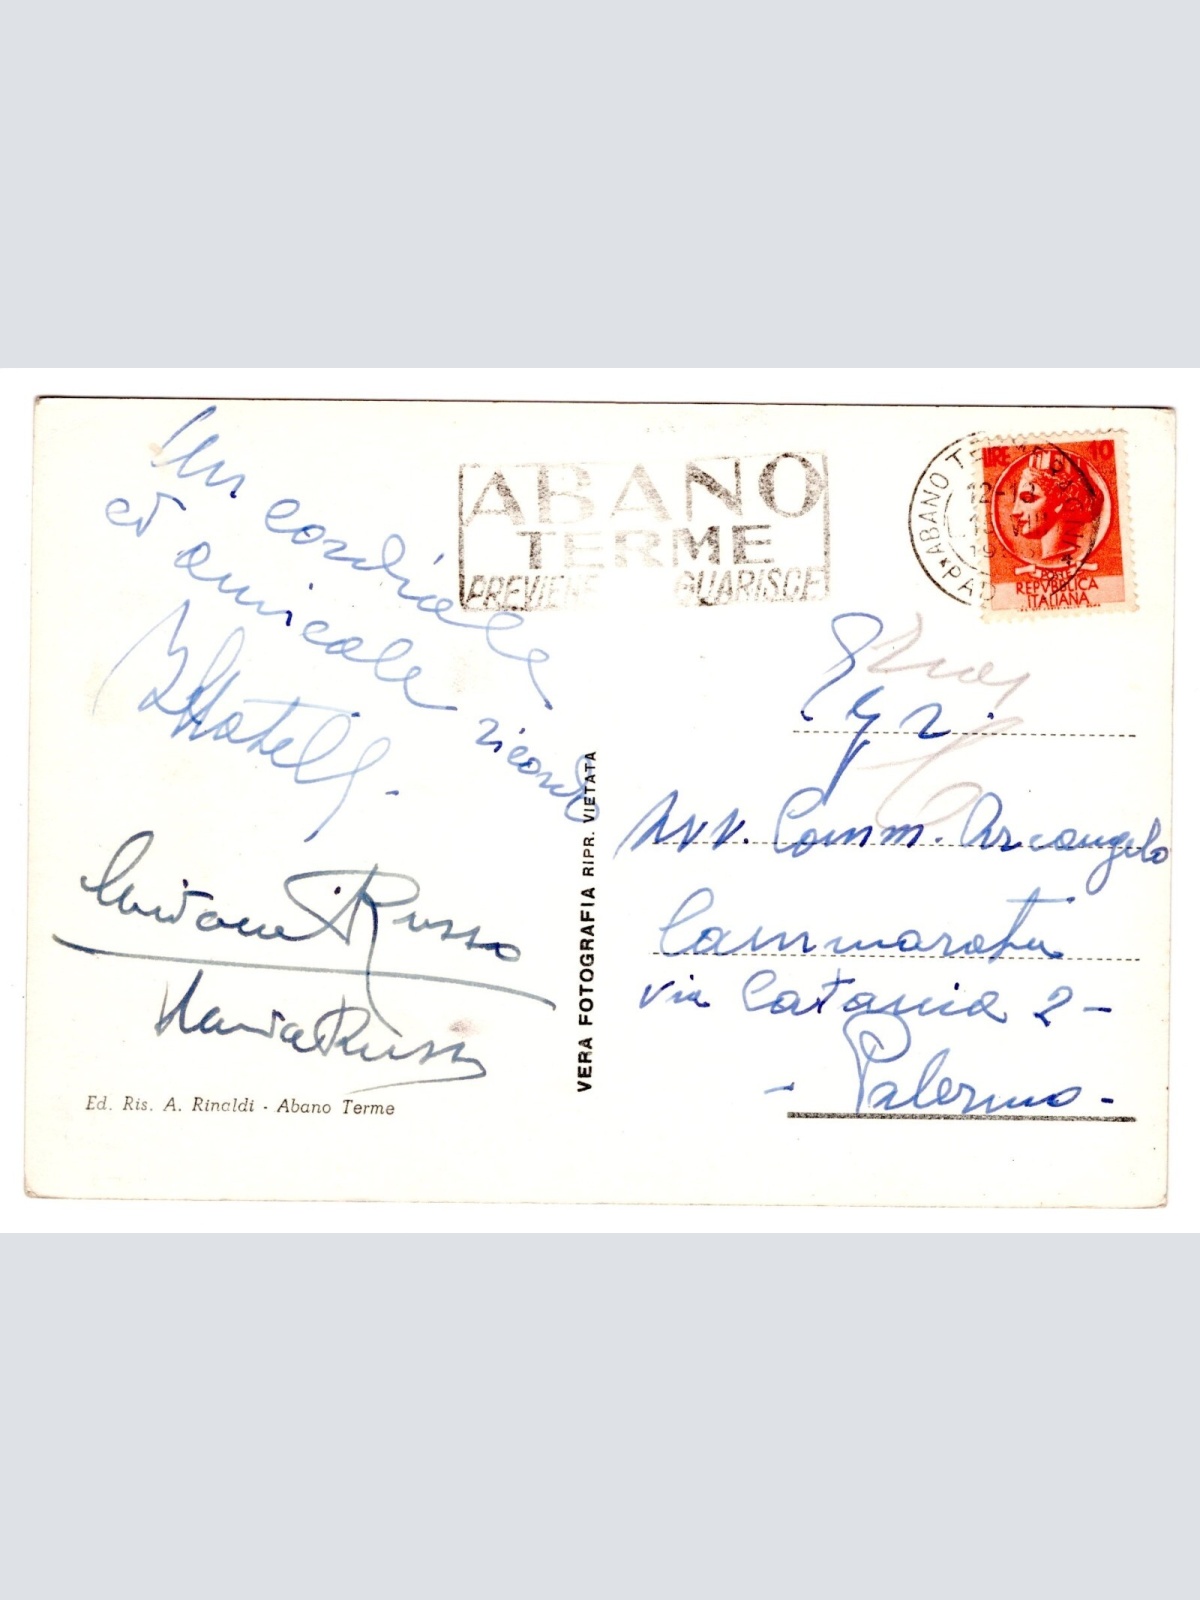 Un cordiale
ed amicale ricordo
Russo
Maria Russo
Ed. Ris. A. Rinaldi - Abano Terme
VERA FOTOGRAFIA RIPR. VIETATA
ABANO
TERME
PREVIENE GUARISCE
ABANO TERME
PAD
LIRE 10
POSTE
REPVBBLICA
ITALIANA
Avv. Comm. Arcangelo
Cammarata
via Catania 2 -
- Palermo -